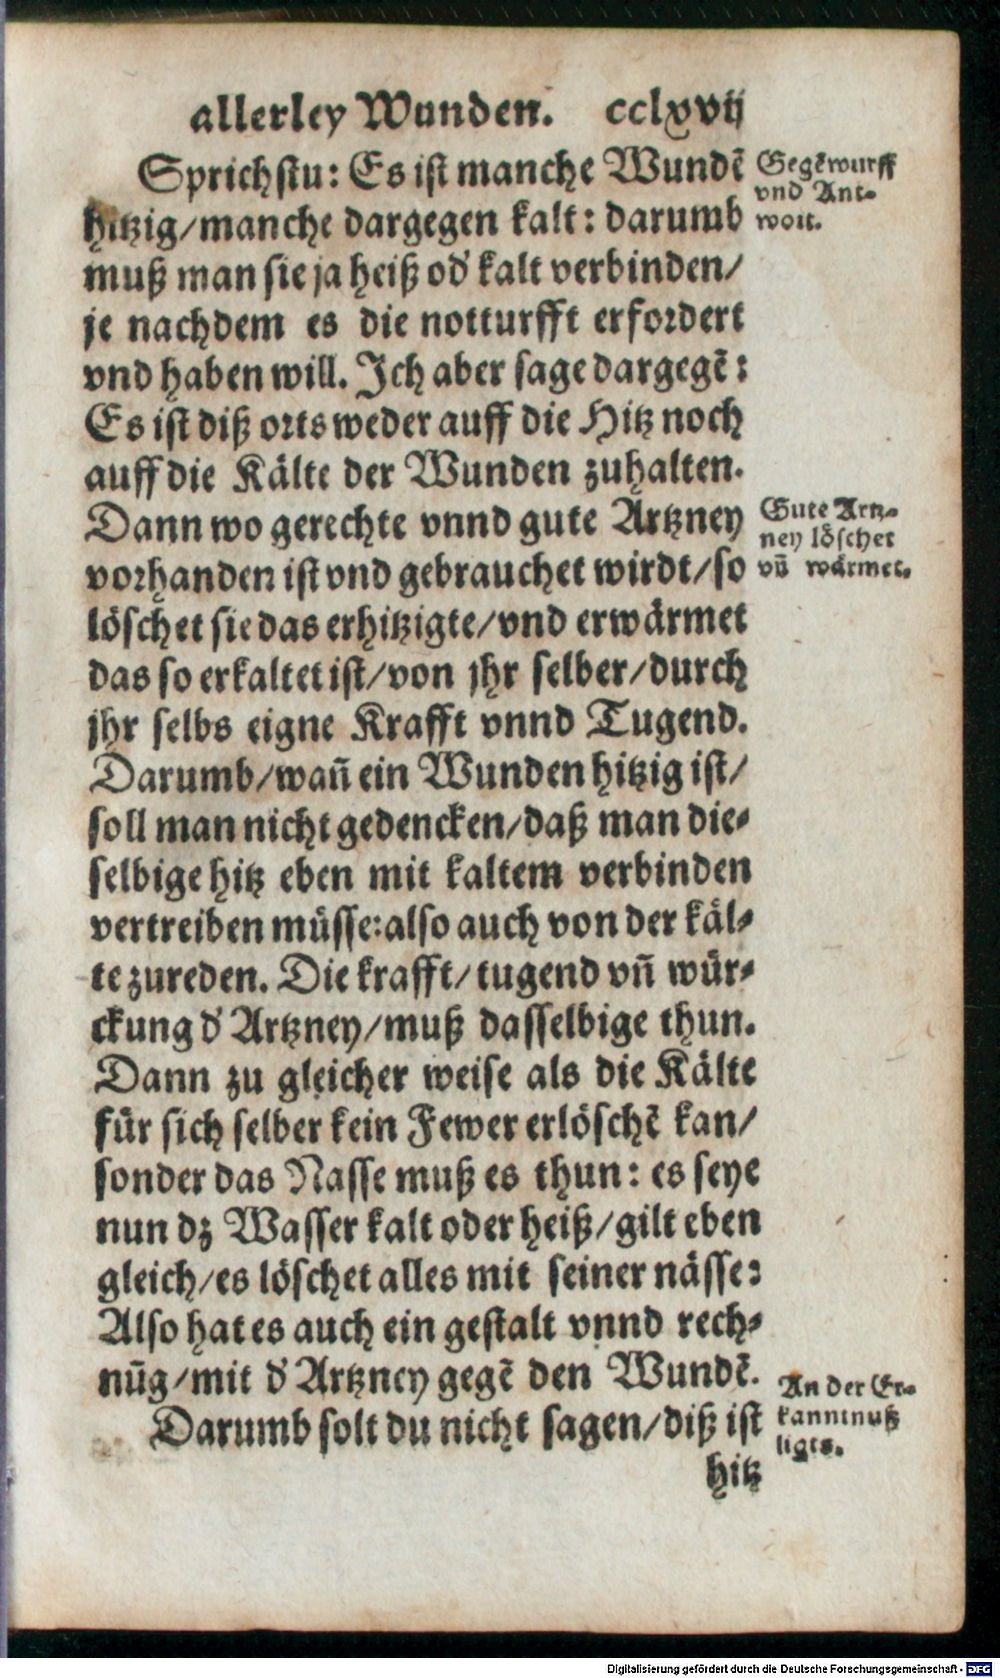 allerley Wunden. cclxvij
Sprichstu: Es ist manche Wundẽ
hitzig/manche dargegen kalt: darumb
muß man sie ja heiß od' kalt verbinden/
je nachdem es die notturfft erfordert
vnd haben will. Ich aber sage dargegẽ:
Es ist diß orts weder auff die Hitz noch
auff die Kälte der Wunden zuhalten.
Dann wo gerechte vnnd gute Artzney
vorhanden ist vnd gebrauchet wirdt/so
löschet sie das erhitzigte/vnd erwärmet
das so erkaltet ist/von jhr selber/durch
jhr selbs eigne Krafft vnnd Tugend.
Darumb/wañ ein Wunden hitzig ist/
soll man nicht gedencken/daß man die-
selbige hitz eben mit kaltem verbinden
vertreiben müsse: also auch von der käl-
te zureden. Die krafft/tugend vñ wür-
ckung d' Artzney/muß dasselbige thun.
Dann zu gleicher weise als die Kälte
für sich selber kein Fewer erlöschẽ kan/
sonder das Nasse muß es thun: es seye
nun dz Wasser kalt oder heiß/gilt eben
gleich/es löschet alles mit seiner nässe:
Also hat es auch ein gestalt vnnd rech-
nũg/mit d' Artzney gegẽ den Wundẽ.
Darumb solt du nicht sagen/diß ist
hitz
Gegẽwurff
vnd Ant-
wort.
Gute Artz-
ney löschet
vñ wärmet.
An der Er-
kanntnuß
ligts.
Digitalisierung gefördert durch die Deutsche Forschungsgemeinschaft - DFG